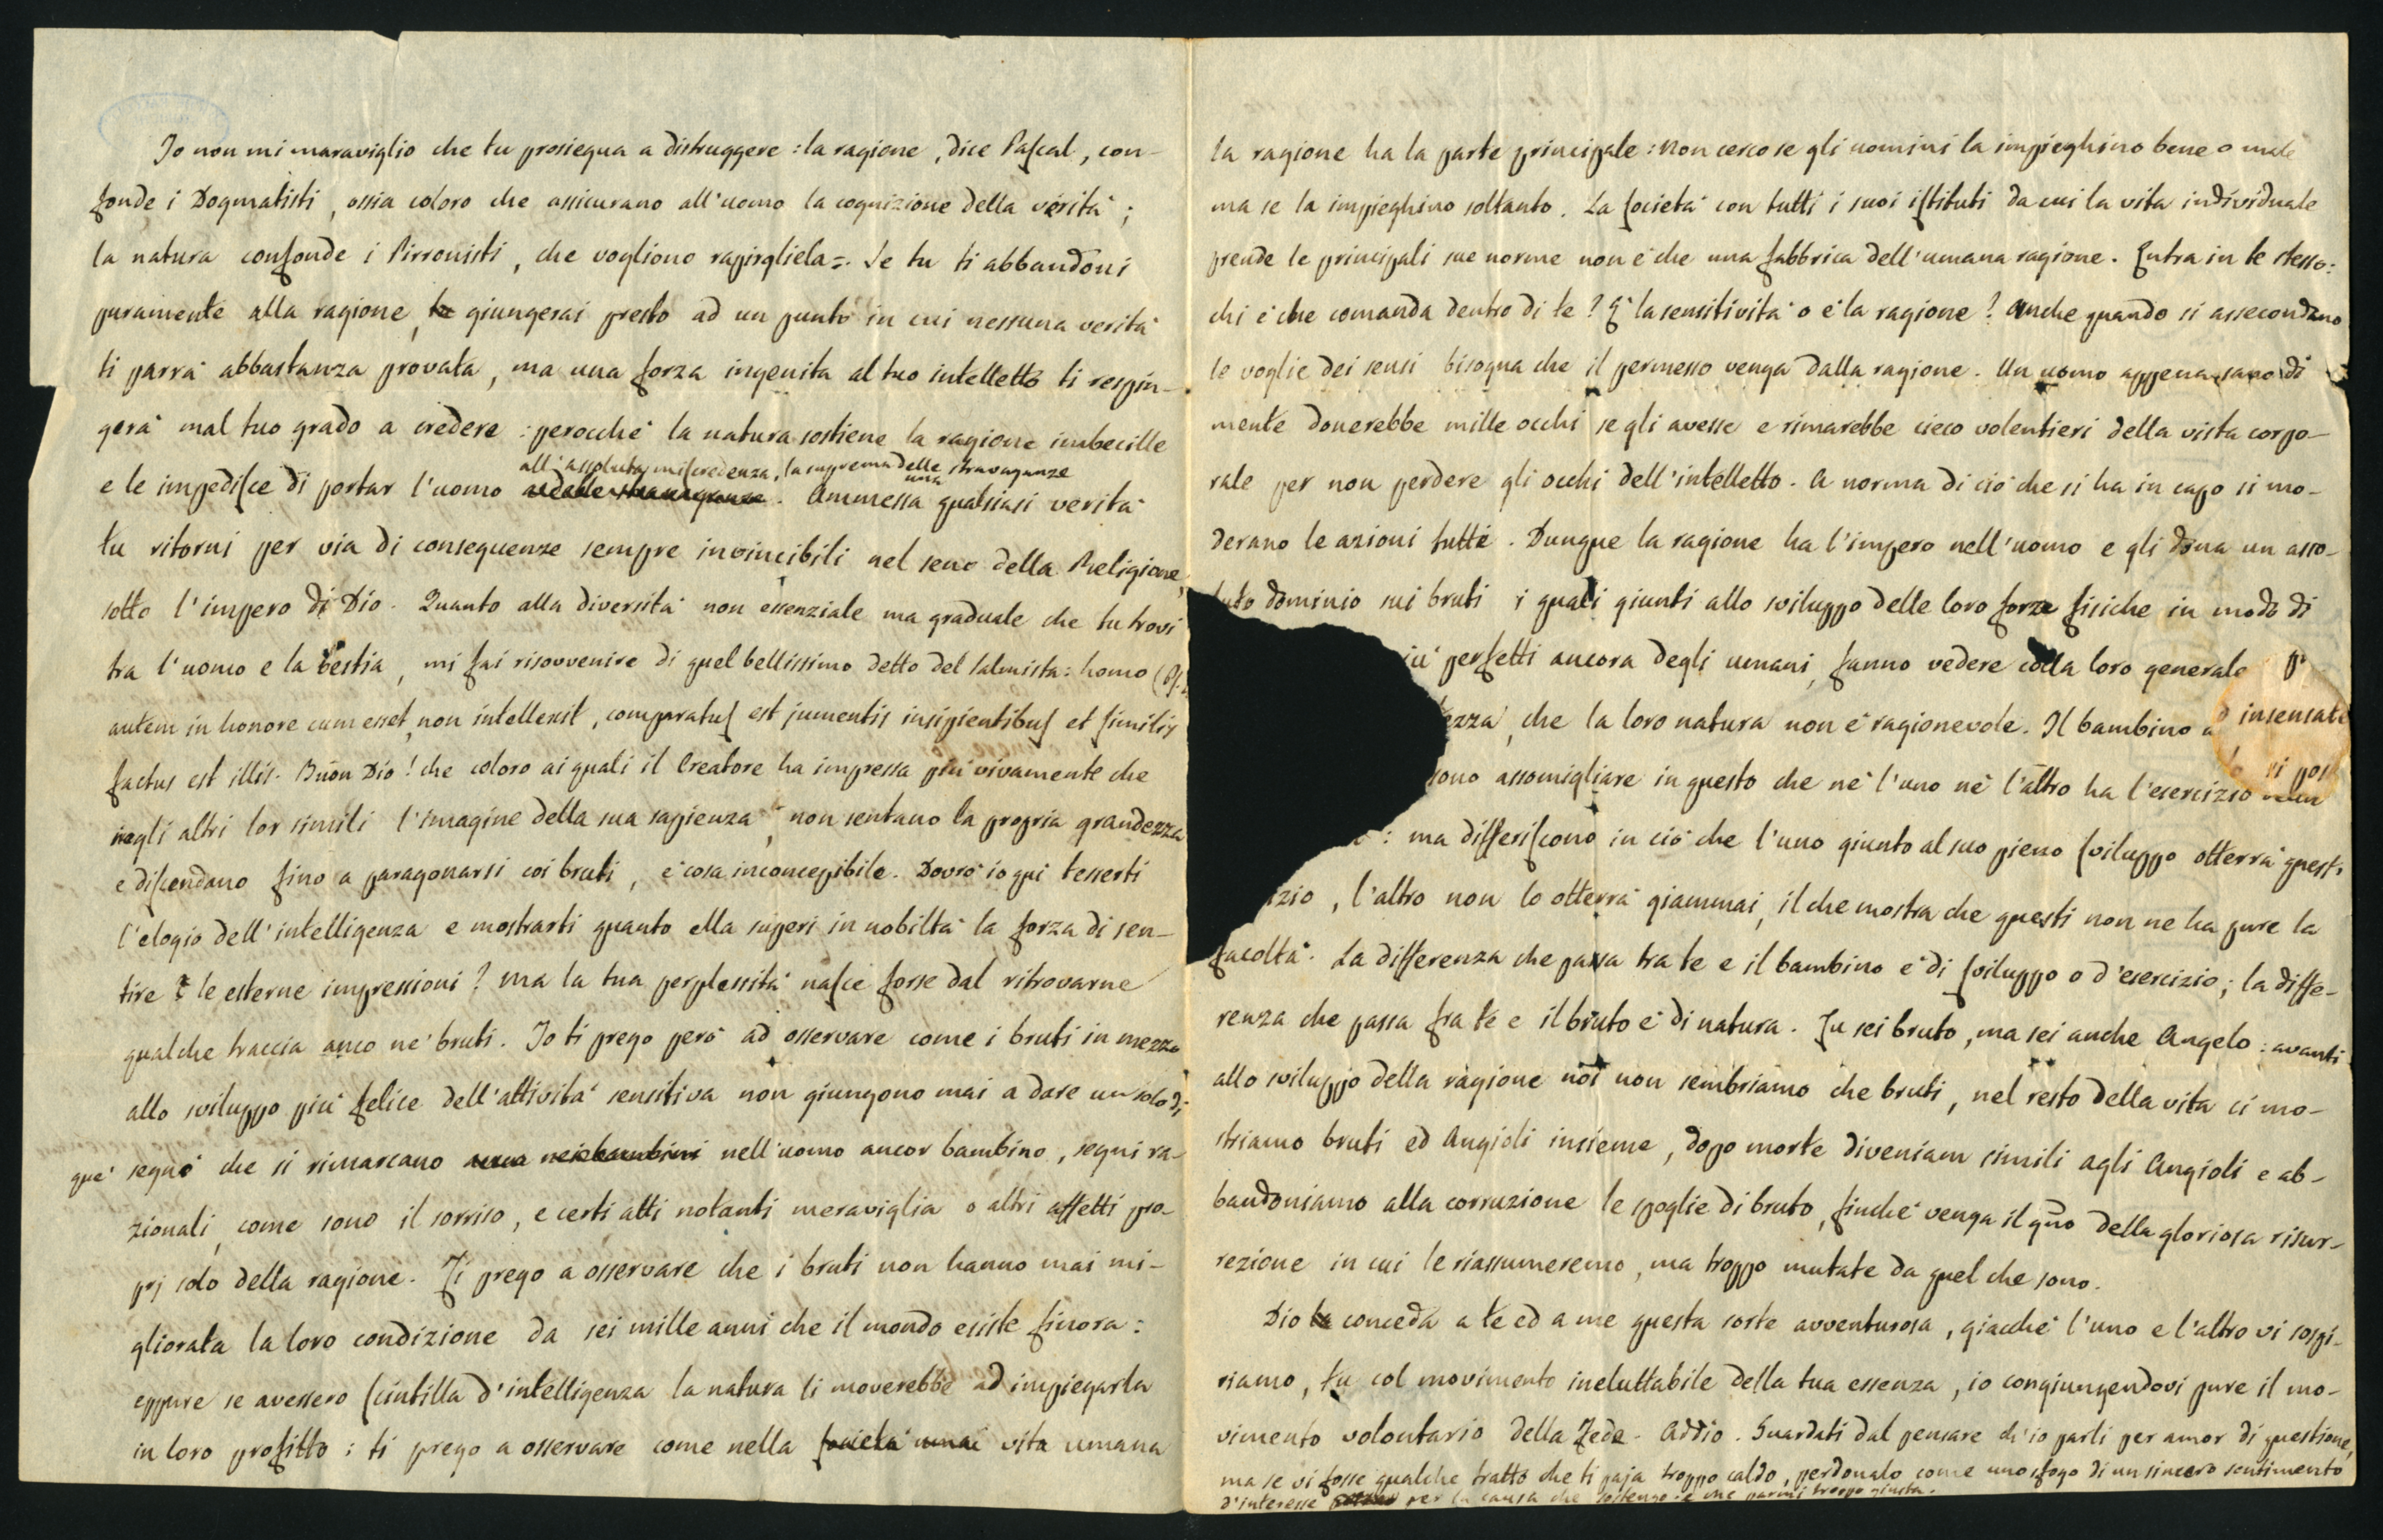 Io non mi maraviglio che tu prosiegua a distruggere : la ragione, dice Pascal, con-
fonde i Dogmatisti, ossia coloro che assicurano all'uomo la cognizione della verità ;
la natura confonde i Pirronisti, che vogliono rapirgliela =. Se tu ti abbandoni
puramente alla ragione, giungerai presto ad un punto in cui nessuna verità
ti parrà abbastanza provata, ma una forza ingenita al tuo intelletto ti respin-
gerà mal tuo grado a credere : perocchè la natura sostiene la ragione imbecille
all'assoluta miscredenza, la suprema delle stravaganze
e le impedisce di portar l'uomo . Ammessa una qualsiasi verità
tu ritorni per via di conseguenze sempre invincibili nel seno della Religione,
sotto l'impero di Dio. Quanto alla diversità non essenziale ma graduale che tu trovi
tra l'uomo e la bestia, mi fai risovvenire di quel bellissimo detto del Salmista : homo (Ps.
autem in honore cum esset, non intellexit, comparatus est jumentis insipientibus et similis
factus est illis. Buon Dio ! che coloro ai quali il Creatore ha impressa più vivamente che
negli altri lor simili l'imagine della sua sapienza, non sentano la propria grandezza
e discendano fino a paragonarsi coi bruti, è cosa inconcepibile. Dovrò io qui tesserti
l'elogio dell'intelligenza e mostrarti quanto ella superi in nobiltà la forza di sen-
tire le esterne impressioni ? Ma la tua perplessità nasce forse dal ritrovarne
qualche traccia anco ne' bruti. Io ti prego però ad osservare come i bruti in mezzo
allo sviluppo più felice dell'attività sensitiva non giungono mai a dare un solo di
que' segni che si rimarcano nei bambini nell'uomo ancor bambino, segni ra-
zionali, come sono il sorriso, e certi atti notanti meraviglia o altri affetti pro-
prj solo della ragione. Ti prego a osservare che i bruti non hanno mai mi-
gliorata la loro condizione da sei mille anni che il mondo esiste finora :
eppure se avessero scintilla d'intelligenza la natura li moverebbe ad impiegarla
in loro profitto : ti prego a osservare come nella società umai vita umana
la ragione ha la parte principale : non cerco se gli uomini la impieghino bene o male
ma se la impieghino soltanto. La società con tutti i suoi istituti da cui la vita individuale
prende le principali sue norme non è che una fabbrica dell'umana ragione. Entra in te stesso :
chi è che comanda dentro di te ? È la sensitività o è la ragione ? Anche quando si assecondano
le voglie dei sensi bisogna che il permesso venga dalla ragione. Un uomo appena sano di
mente donerebbe mille occhi se gli avesse e rimarebbe cieco volentieri della vista corpo-
rale per non perdere gli occhi dell'intelletto. A norma di ciò che si ha in capo si mo-
derano le azioni tutte. Dunque la ragione ha l'impero nell'uomo e gli dona un asso-
luto dominio sui bruti i quali giunti allo sviluppo delle loro forze fisiche in modo di
più perfetti ancora degli umani, fanno vedere colla loro generale
ezza, che la loro natura non è ragionevole. Il bambino insensate
sono assomigliare in questo che nè l'uno nè l'altro ha l'esercizio
: ma differiscono in ciò che l'uno giunto al suo pieno sviluppo otterrà questo
izio, l'altro non lo otterrà giammai, il che mostra che questi non ne ha pure la
facoltà. La differenza che passa tra te e il bambino è di sviluppo o d'esercizio ; la diffe-
renza che passa fra te e il bruto è di natura. Tu sei bruto, ma sei anche Angelo : avanti
allo sviluppo della ragione noi non sembriamo che bruti, nel resto della vita ci mo-
striamo bruti ed Angioli insieme, dopo morte diveniam simili agli Angioli e ab-
bandoniamo alla corruzione le spoglie di bruto, finchè venga il gno della gloriosa risur-
rezione in cui le riassumeremo, ma troppo mutate da quel che sono.
Dio conceda a te ed a me questa sorte avventurosa, giacchè l'uno e l'altro vi sospi-
riamo, tu col movimento ineluttabile della tua essenza, io congiungendovi pure il mo-
vimento volontario della Fede. Addio. Guardati dal pensare ch'io parli per amor di questione,
ma se vi fosse qualche tratto che ti paja troppo caldo, perdonalo come uno sfogo di un sincero sentimento
d'interesse per la causa che sostengo e che parmi troppo giusta.